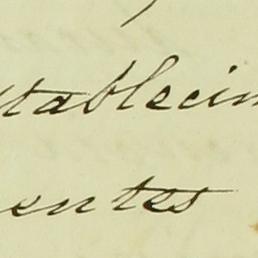 stablecim
entes